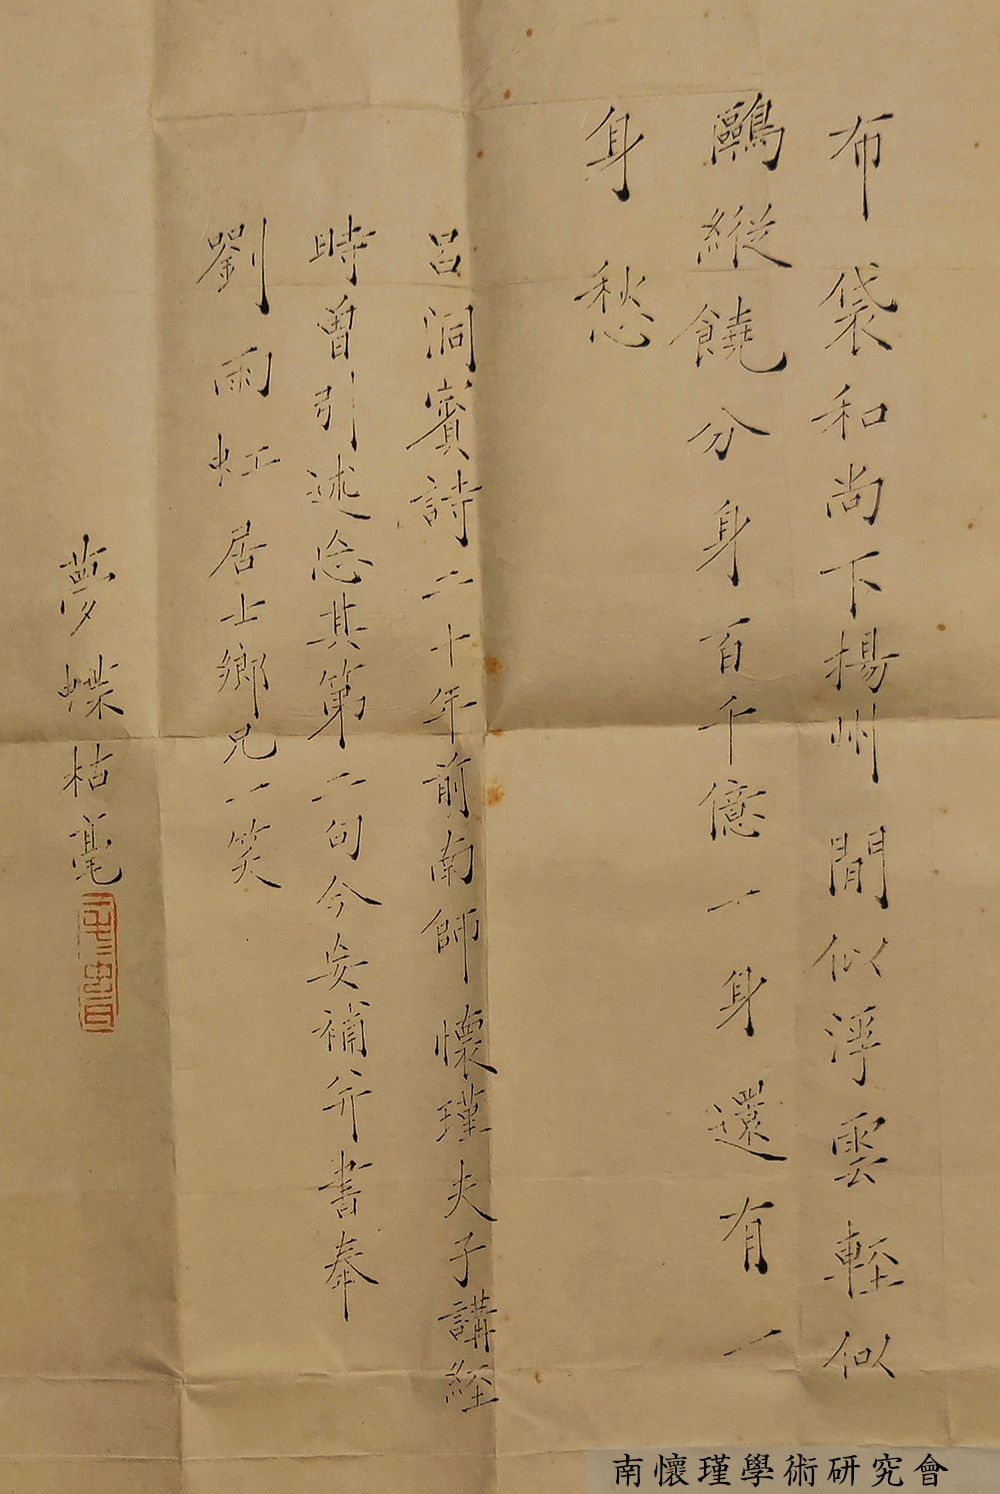 布袋和尚下揚州閒似浮雲輕似
鷗縱饒分身百千億一身還有一
身愁
呂洞賓詩二十年前南師懷瑾夫子講經
時曾引述忘其第二句今妄補并書奉
劉雨虹居士鄉兄一笑
夢蝶枯毫
南懷瑾學術研究會